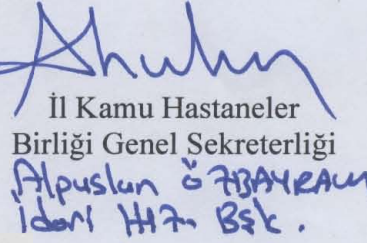 İl Kamu Hastaneler
Birliği Genel Sekreterliği
Alpuslan ÖZBAYRAM
İdari Hiz. Bşk.